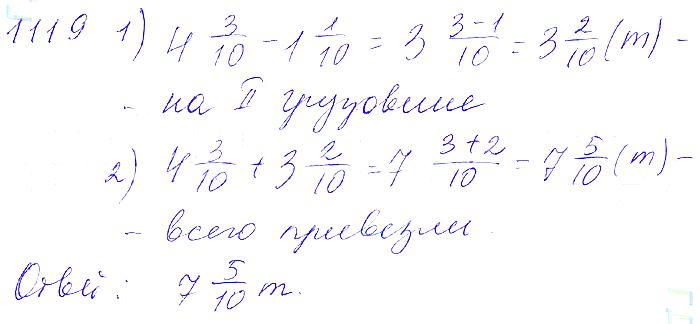 1119 1) 4 3/10 - 1 1/10 = 3 (3-1)/10 = 3 2/10 (т) -
- на II грузовике
2) 4 3/10 + 3 2/10 = 7 (3+2)/10 = 7 5/10 (т) -
- всего привезли.
Ответ: 7 5/10 т.